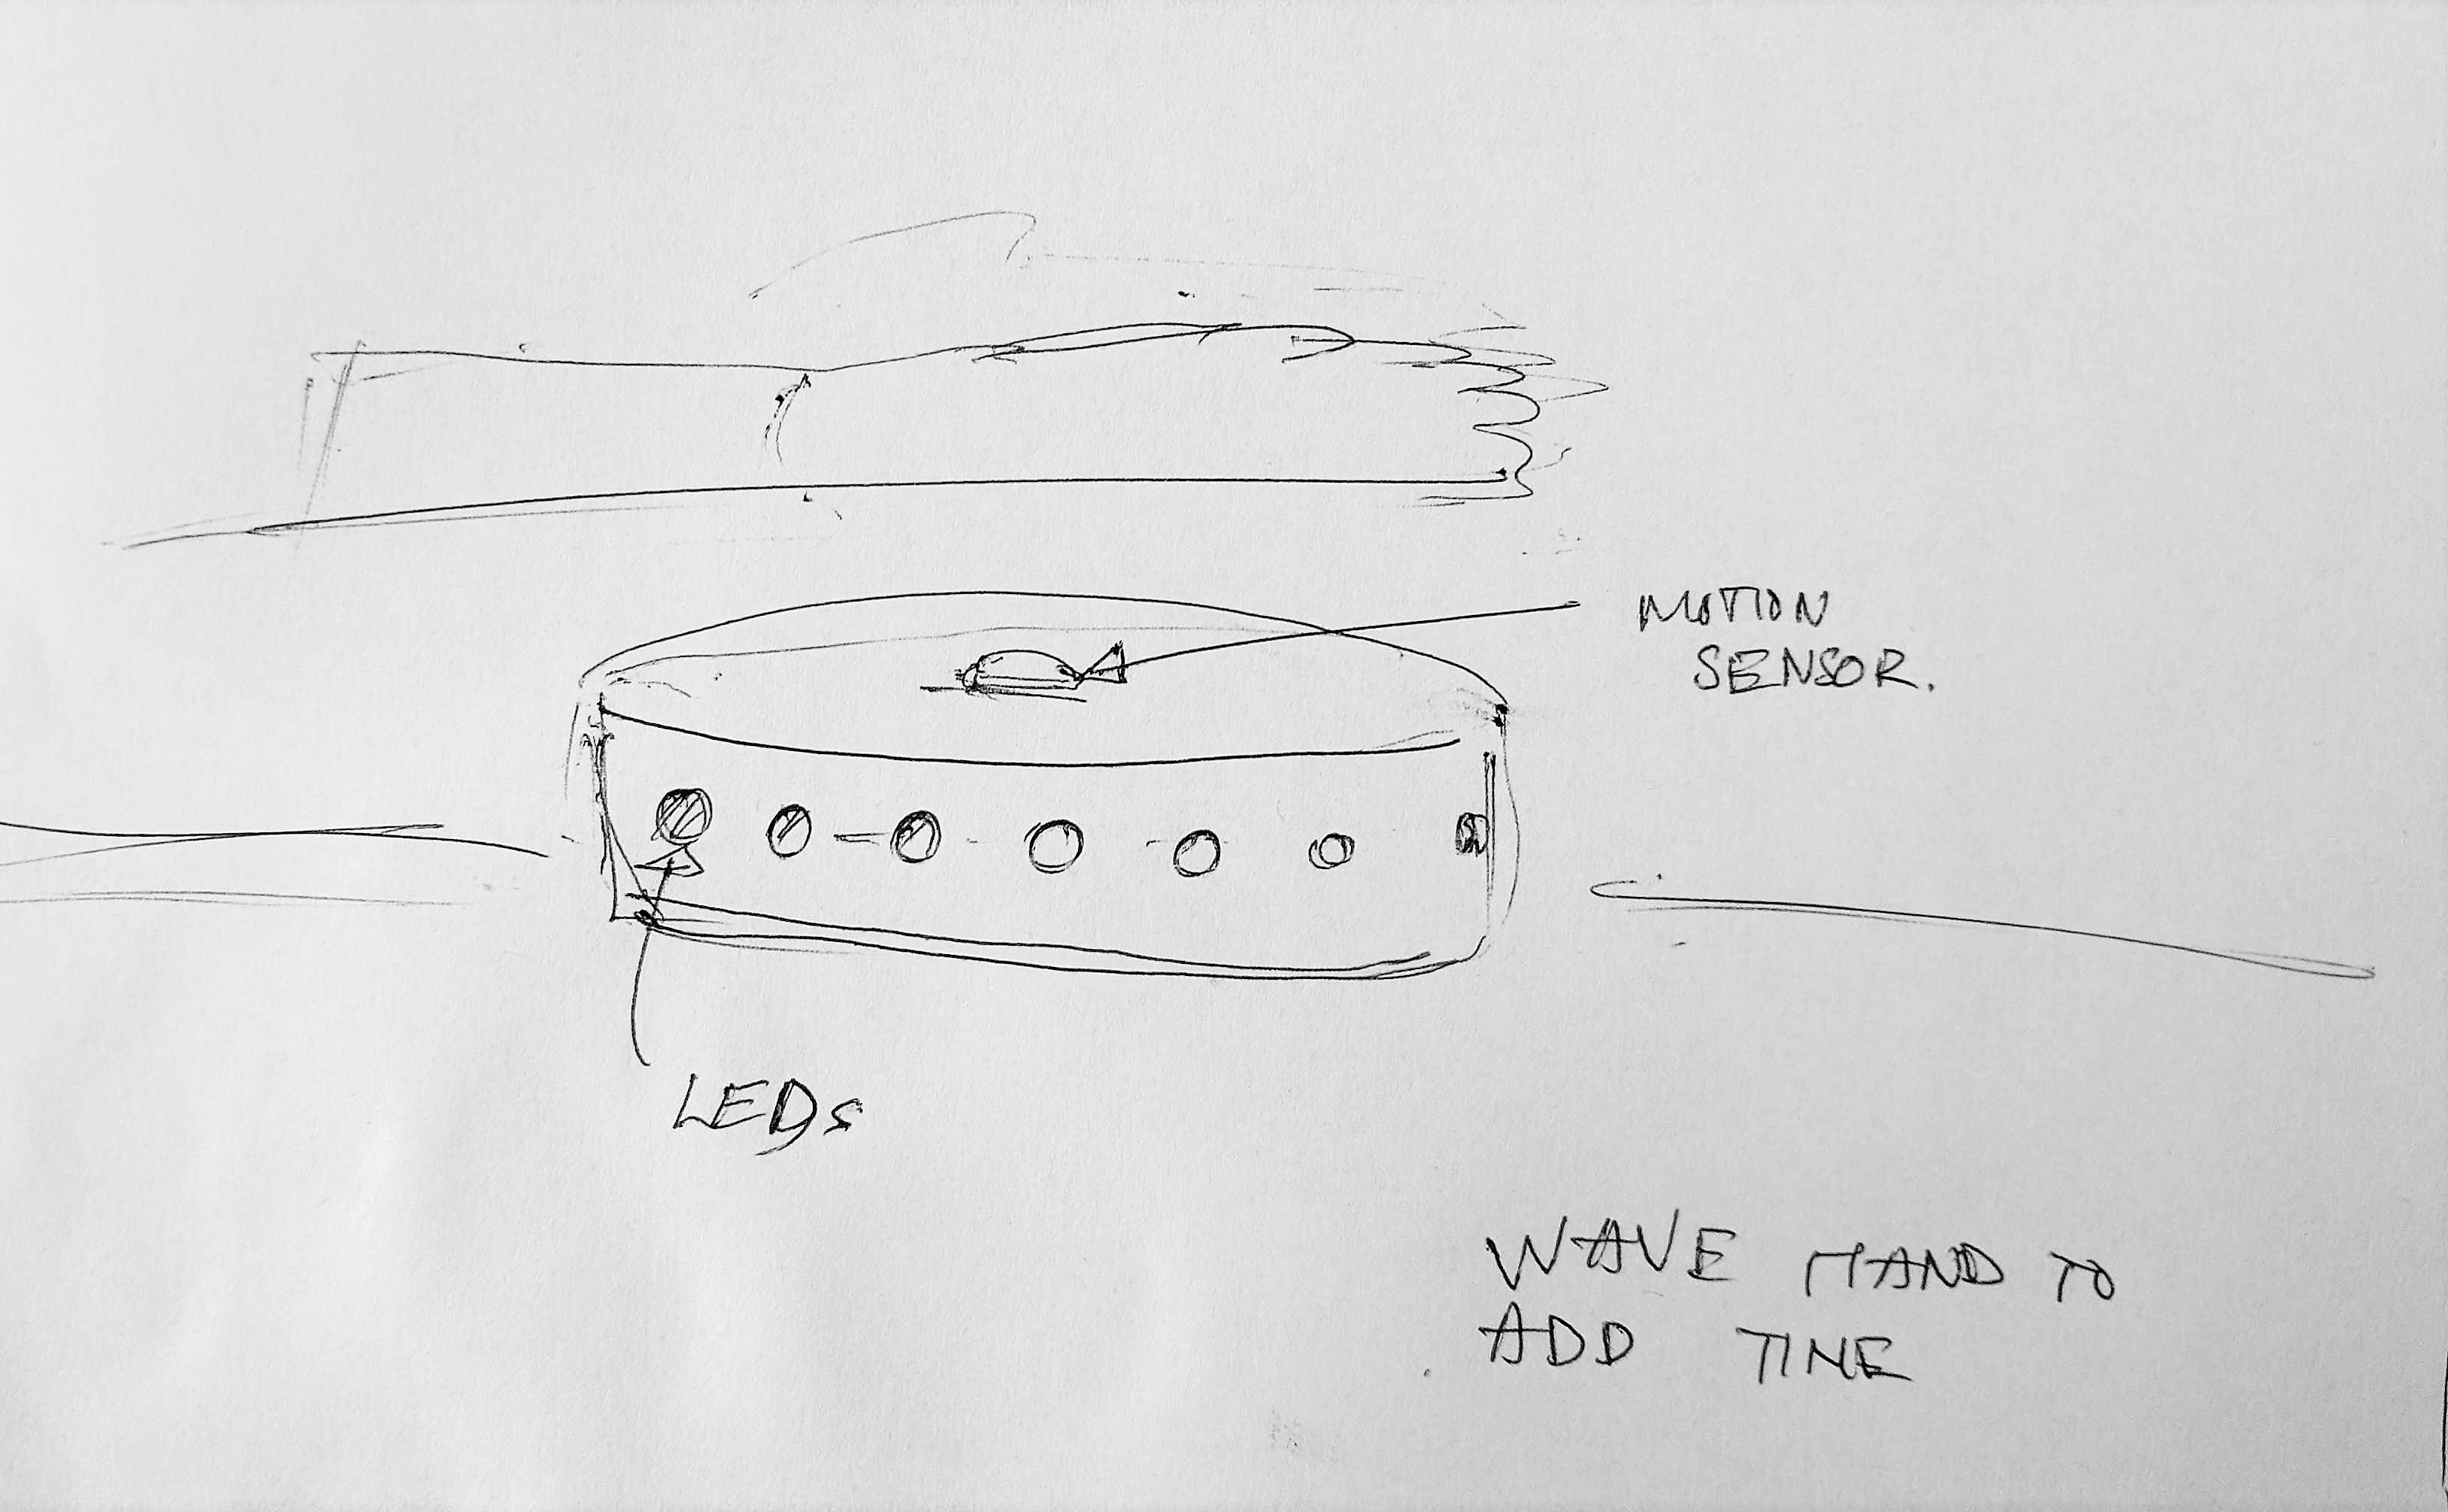 MOTION
SENSOR.
LEDs
WAVE HAND TO
ADD TIME